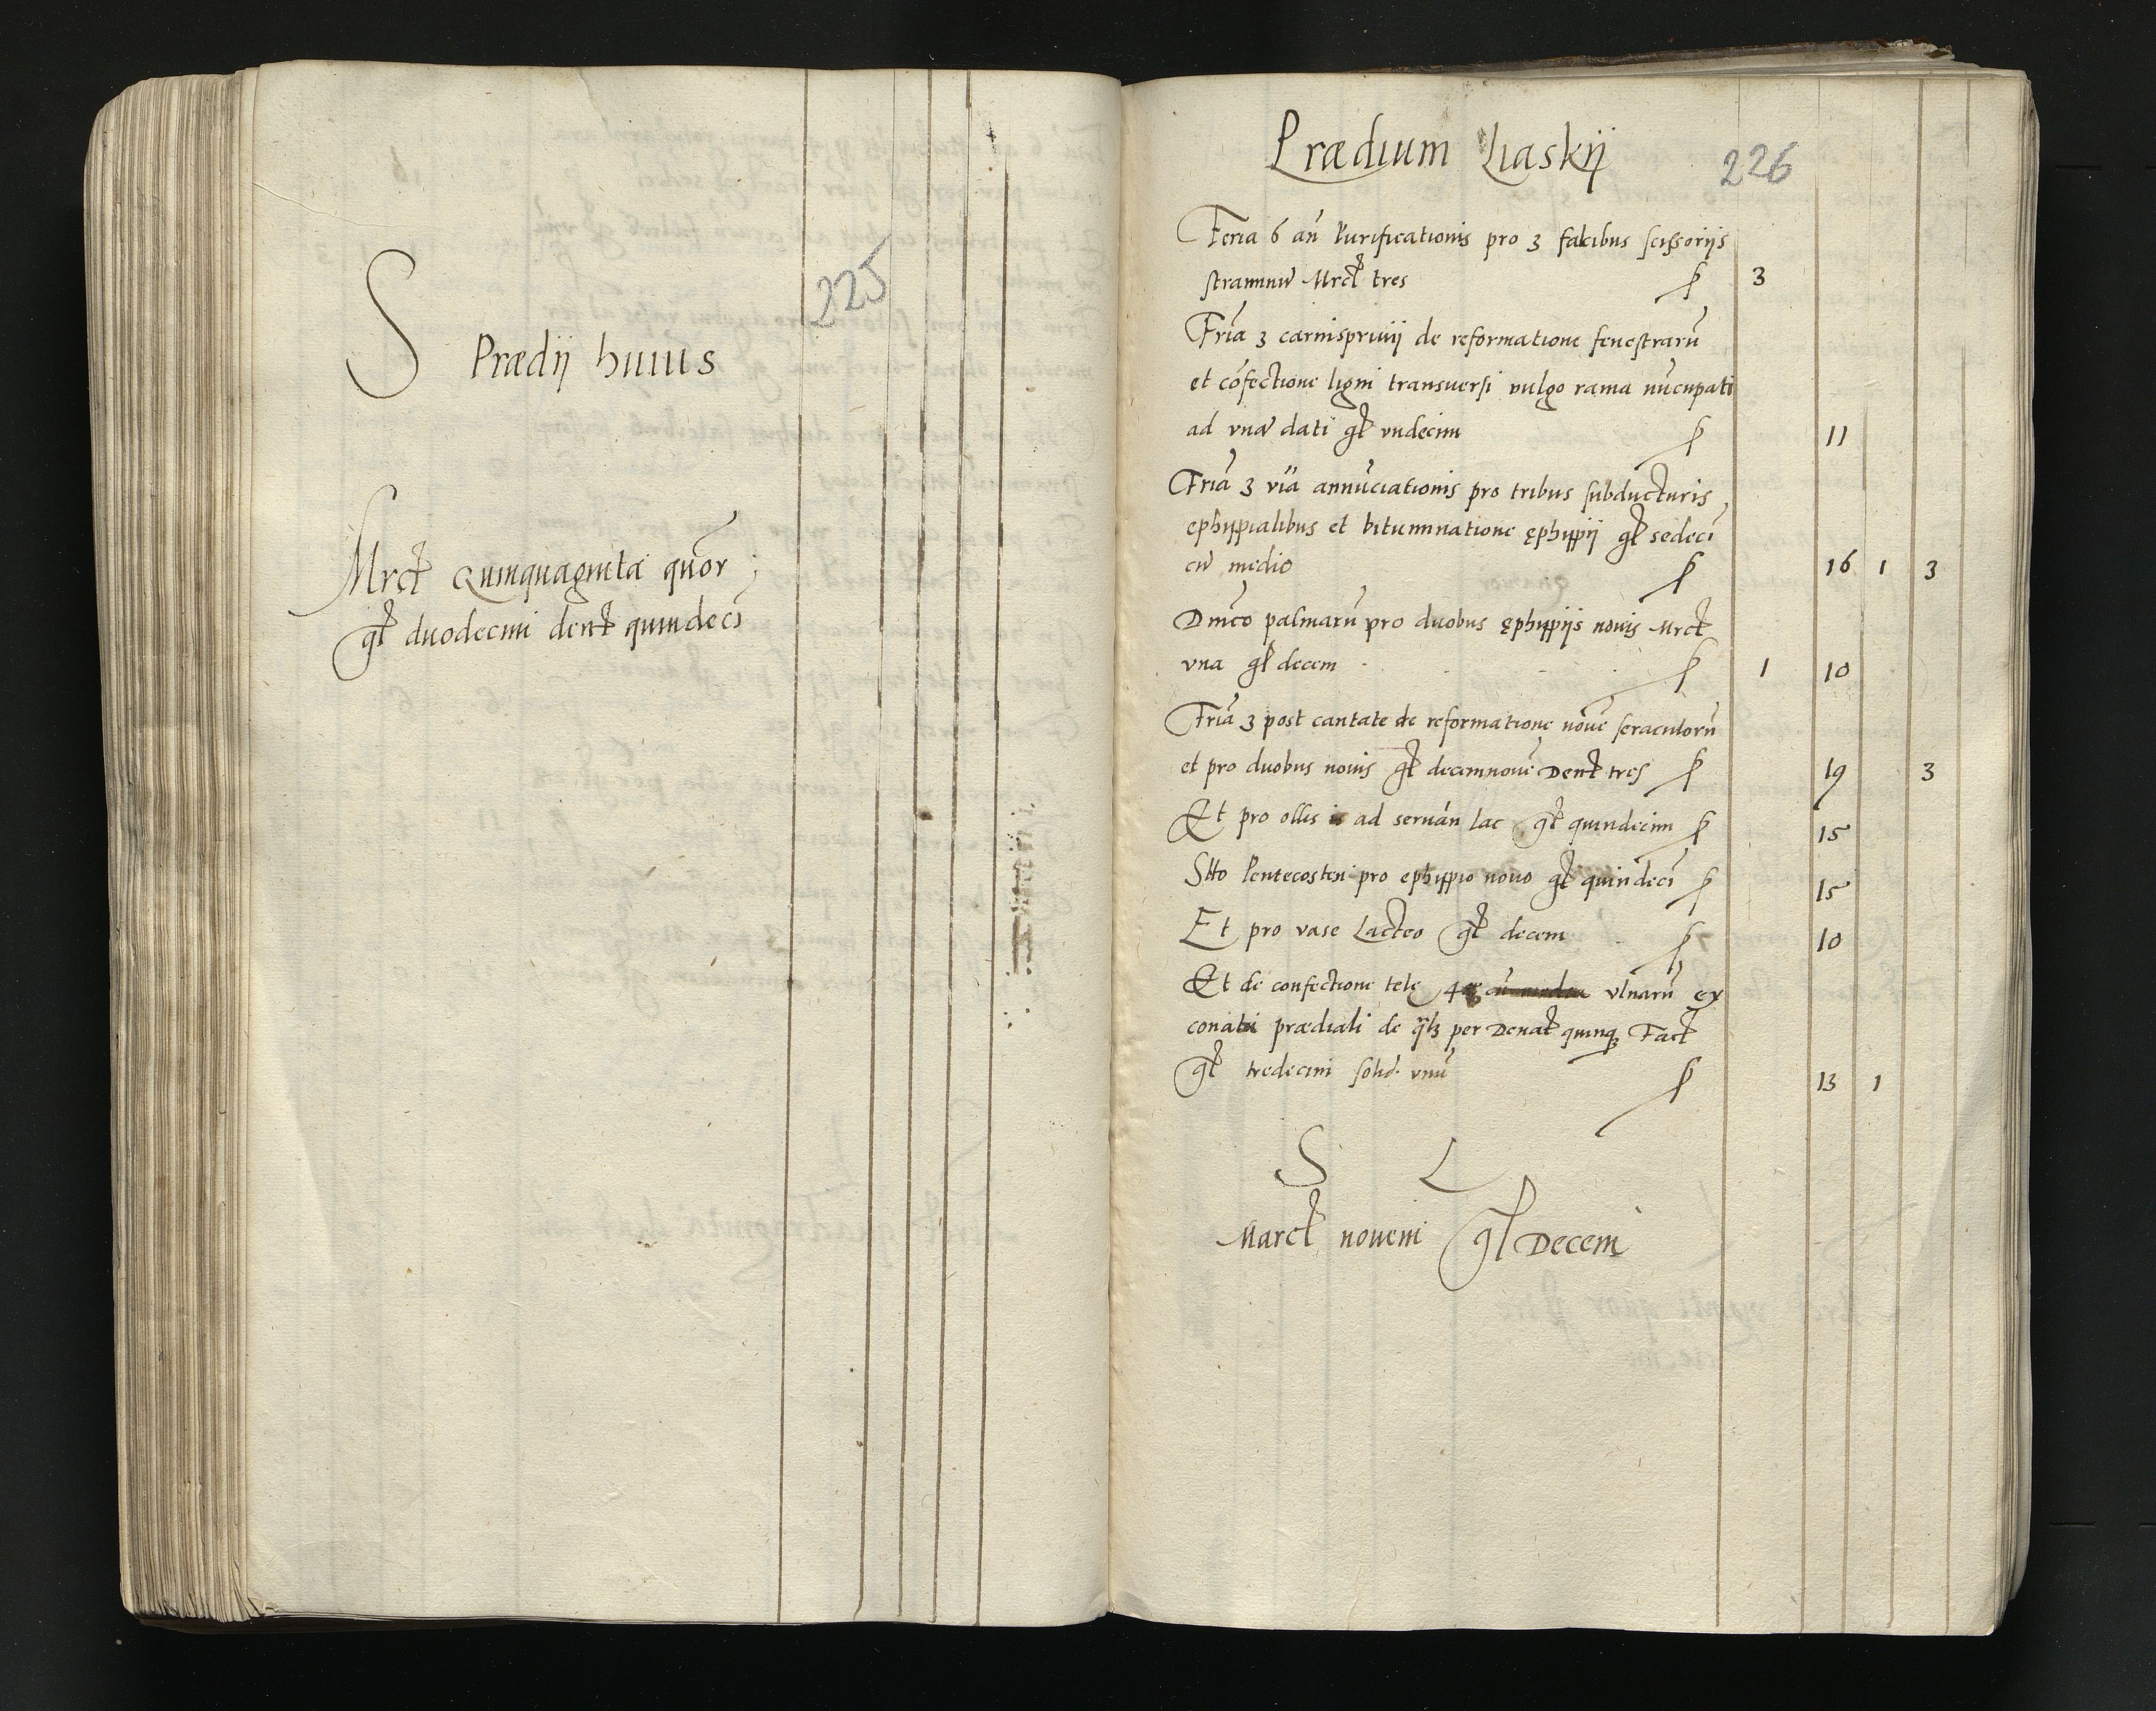 225
S Prædij huius
Mrct Quinquaginta quõr ;
gt duodecim dent quindecĩ
Prædium Liaskij 226
Feria 6 añ Purificationis pro 3 falcibus scissorijs
straminũ Mrct tres ꝑ 3
Fria 3 carnispriuij de reformatione fenestrarũ
et cõfectione ligni transuersi vulgo rama nũcupati
ad vnã dati gt vndecim ꝑ 11
Fria 3 via annũciationis pro tribus subducturis
ephippialibus et bituminatione ęphippij gt sedecĩ
cũ medio ꝑ 16 1 3
Dnico palmarũ pro duobus ęphippijs nouis Mrct
vna gt decem ꝑ 1 10
Fria 3 post cantate de reformatione nouẽ seraculorũ
et pro duobus nouis gt decemnouẽ Dent tres ꝑ 19 3
Et pro ollis ad seruan lac gt quindecim ꝑ 15
Sbto Pentecosten pro ephippio nouo gt quindecĩ ꝑ 15
Et pro vase Lacteo gt decem ꝑ 10
Et de confectione tele vlnarũ ex
conatu prædiali de per Denat quinqꝫ Fact
gt tredecim solid. vnũ ꝑ 13 1
S L
Marct nouem gt Decem